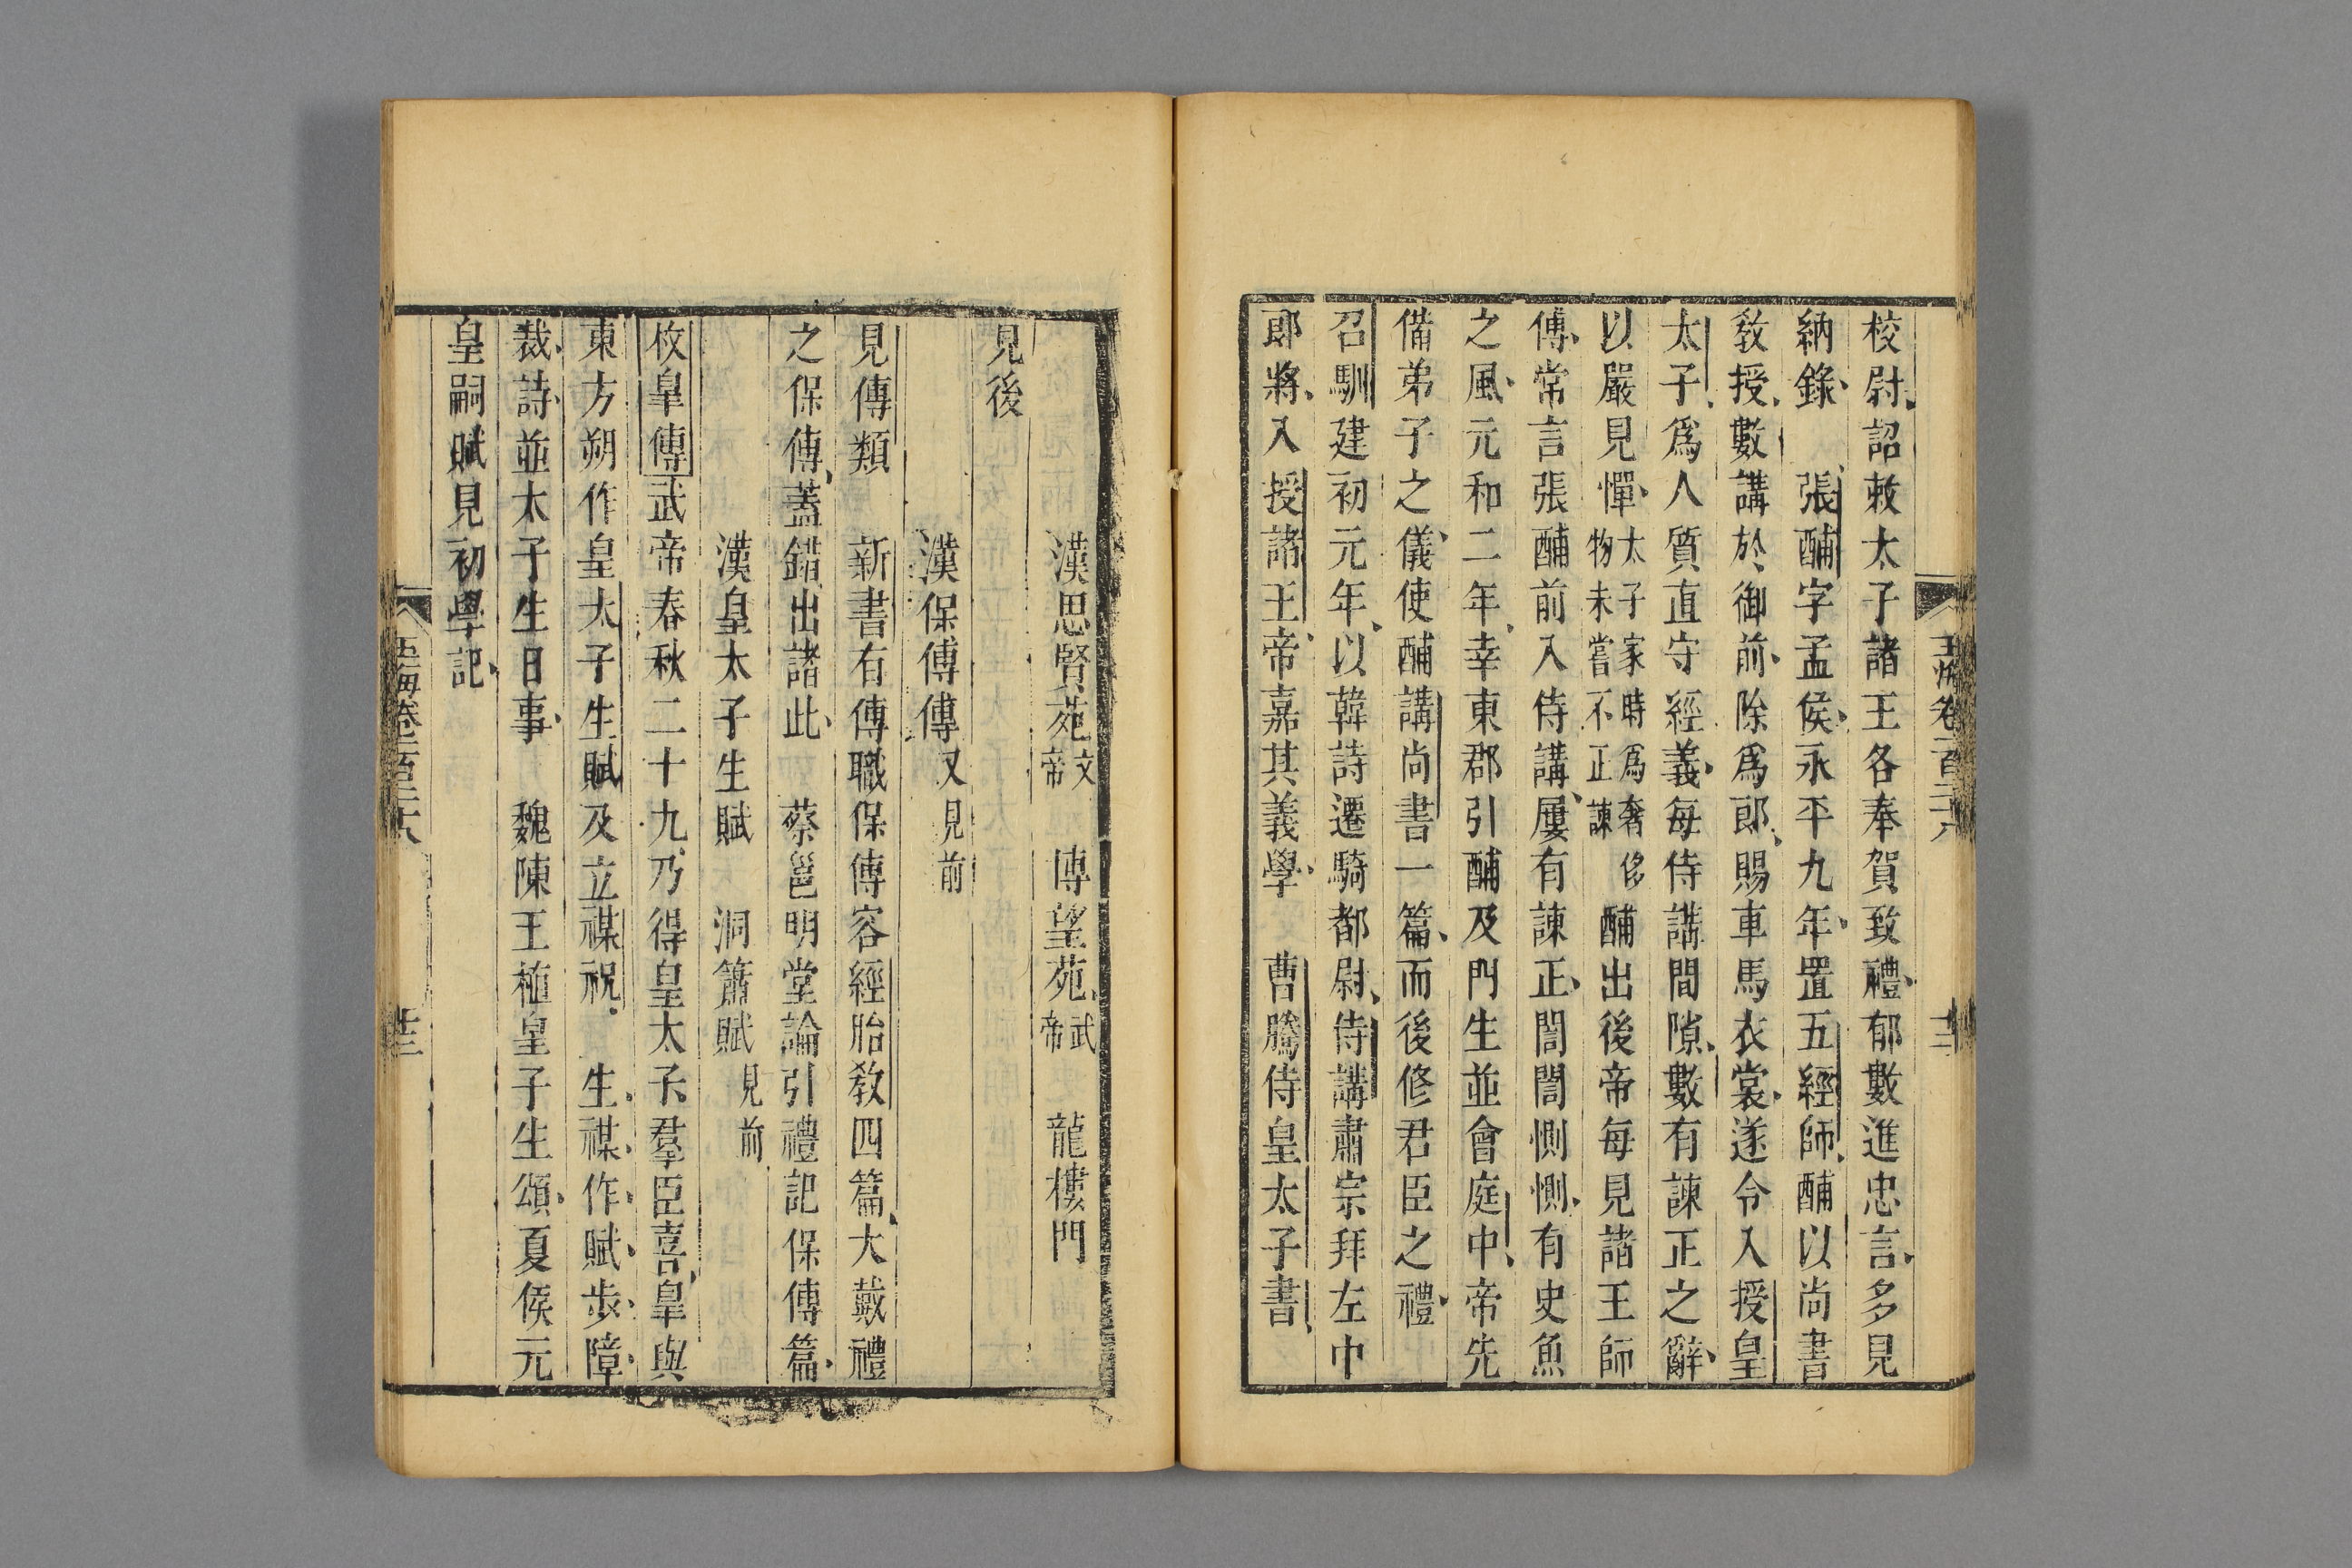 校尉詔敕太子諸王各奉賀致禮郁數進忠言多見
納錄　張酺字孟侯永平九年置五經師酺以尚書
敎授數講於御前除爲郎賜車馬衣裳遂令入授皇
太子爲人質直守經義每侍講間隙數有諫正之辭
以嚴見憚太子家時爲奢侈物未嘗不正諫酺出後帝每見諸王師
傅常言張酺前入侍講屢有諫正誾誾惻惻有史魚
之風元和二年幸東郡引酺及門生並會庭中帝先
備弟子之儀使酺講尚書一篇而後修君臣之禮
召馴建初元年以韓詩遷騎都尉侍講肅宗拜左中
郎將入授諸王帝嘉其義學　曹騰侍皇太子書
漢思賢苑文帝　博望苑武帝　龍樓門
見後
漢保傅傳又見前
見傅類　新書有傅職保傅容經胎敎四篇大戴禮
之保傅蓋錯出諸此　蔡邕明堂論引禮記保傅篇
漢皇太子生賦　洞簫賦見前
枚皐傳武帝春秋二十九乃得皇太子羣臣喜皐與
東方朔作皇太子生賦及立禖祝　生禖作賦步障
裁詩並太子生日事　魏陳王植皇子生頌夏侯元
皇嗣賦見初學記
玉海卷一百二十八